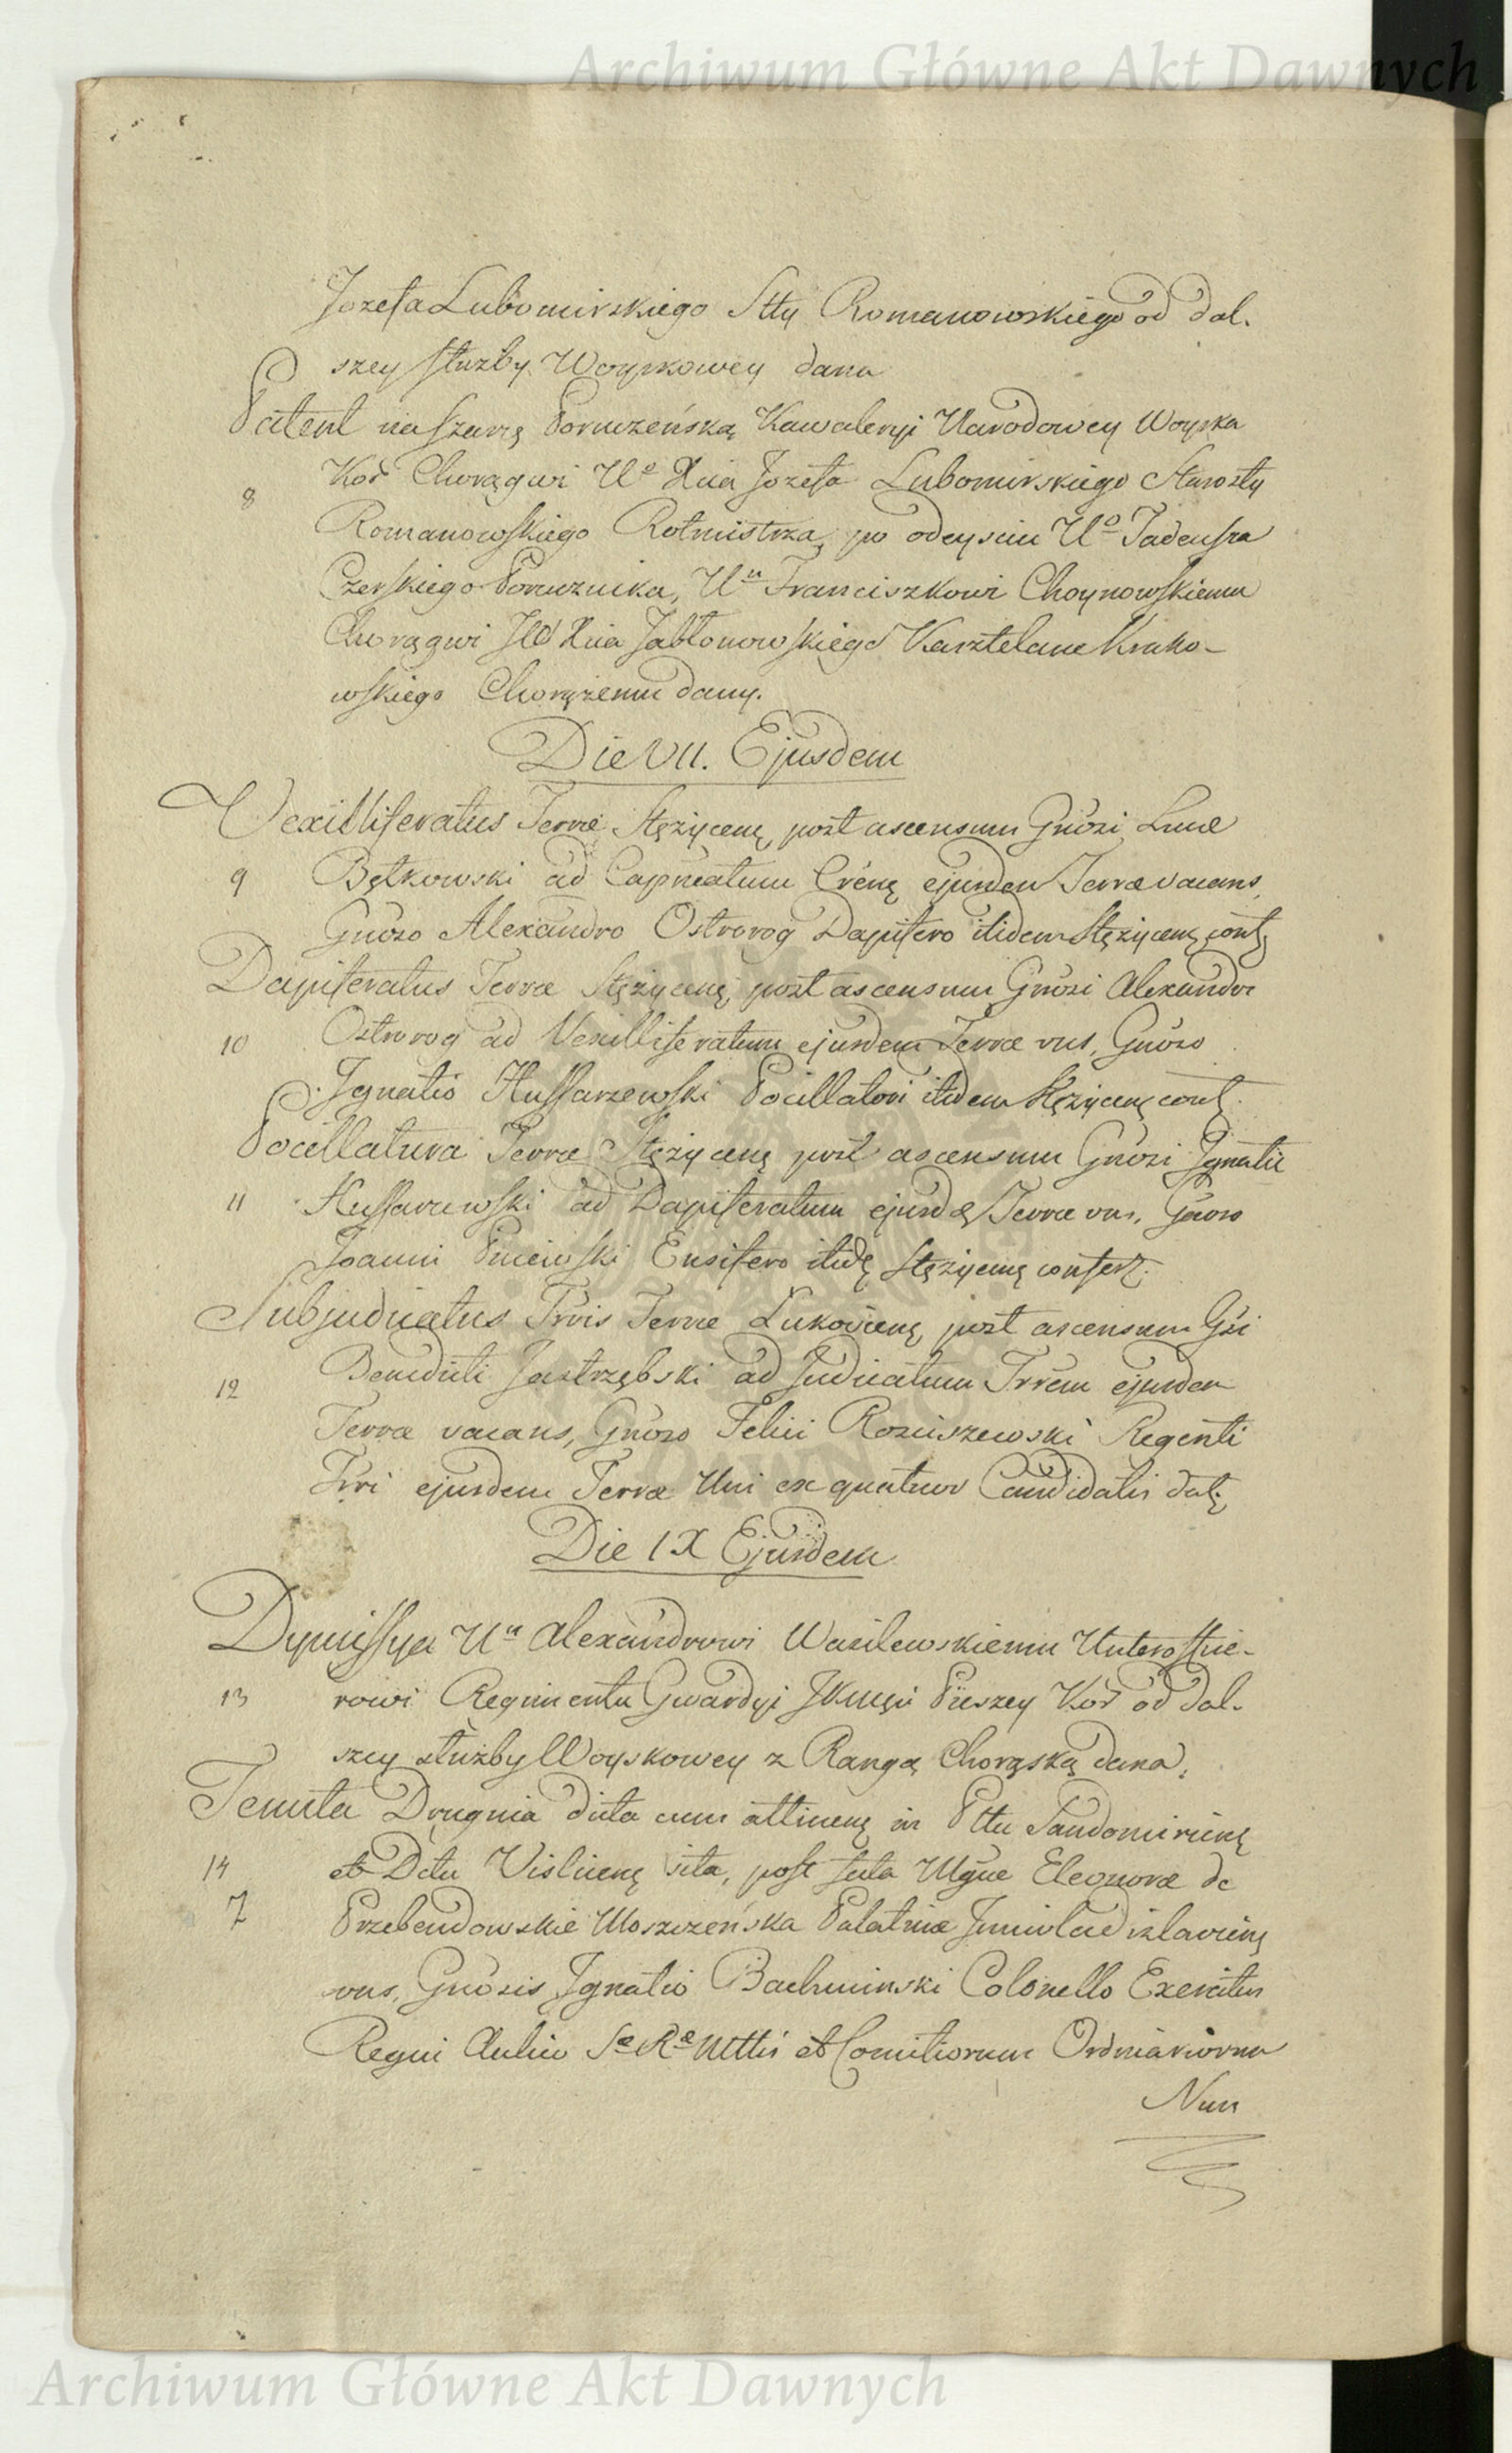 Archiwum Główne Akt Dawnych
Jozefa Lubomirskiego Stty Romanowskiego od dal.
szey służby Woyskowey dana
Patent na szarżę Poruczeńską Kawaleryi Narodowey Woyska
8 Kor Chorągwi Uo Xcia Jozefa Lubomirskiego Starosty
Romanowskiego Rotmistrza, po odeysciu Uo Tadeusza
Czerskiego Porucznika, Uu Franciszkowi Choynowskiemu
Chorągwi JO Xcia Jabłonowskiego Kasztelana Krako-
wskiego Chorążemu dany.
Die VII. Ejusdem
Vexilliferatus Terræ Stężycenę, post ascensum Gnosi Lucæ
9 Bętkowski ad Capneatum Crenę ejusdem Terræ vacans,
Gnoso Alexandro Ostrorog Dapifero itidem Stężycenę contę
Dapiferatus Terræ Stężycenę, post ascensum Gnosi Alexandri
10 Ostrorog ad Vexilliferatum ejusdem Terræ vns, Gnoso
Ignatio Hussarzewski Pocillatori itidem Stężycenę contę.
Pocillatura Terræ Stężycenę post ascensum Gnosi Ignatii
11 Hussarzewski ad Dapiferatum ejusdę Terræ vns, Gnoso
Joanni Pniewski Ensifero itidę Stężycenę confert.
Subjudicatus Trris Terræ Lukovienę, post ascensum Gsi
12 Benedicti Jastrzębski ad Judicatum Trrem ejusdem
Terræ vacans, Gnoso Felici Rosciszewski Regenti
Trri ejusdem Terræ Uni ex quatuor Candidatis datę
Die IX Ejusdem
Dymissya Uu Alexandrowi Wasilewskiemu Unteroffice-
13 rowi Regimentu Gwardyi JKMści Pieszey Kor od dal-
szey służby Woyskowey z Rangą Chorąską dana.
Tenuta Drugnia dicta cum attinenę in Pttu Sandomirienę
14 et Dctu Vislicenę sita, post fata Mgnæ Eleonoræ de
7 Przebendowskie Moszczeńska Palatinæ Juniwladislavienę
vns, Gnosis Ignatio Bachminski Colonello Exercitus
Regni Aulico Sæ Ræ Mttis et Comitiorum Ordinariorum
Nun
Archiwum Główne Akt Dawnych